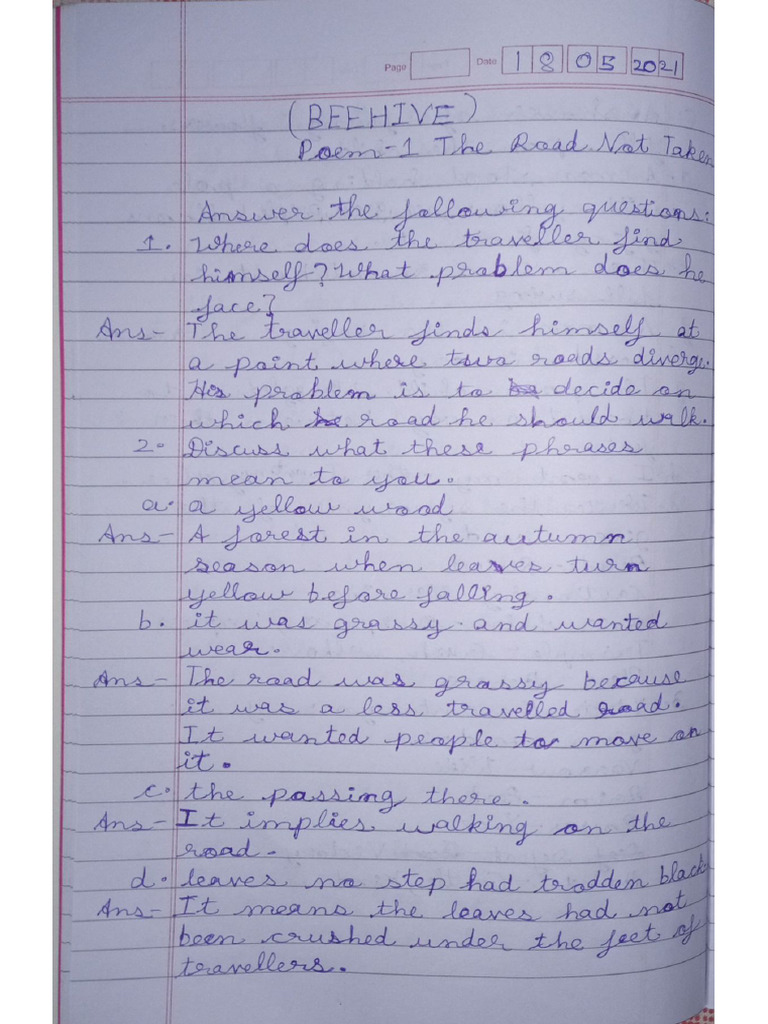 Page Date 18 05 2021
(BEEHIVE)
Poem-1 The Road Not Taken
Answer the following questions:
1. Where does the traveller find
himself? What problem does he
face?
Ans- The traveller finds himself at
a point where two roads diverge.
His problem is to decide on
which road he should walk.
2. Discuss what these phrases
mean to you.
a. a yellow wood
Ans- A forest in the autumn
season when leaves turn
yellow before falling.
b. it was grassy and wanted
wear.
Ans- The road was grassy because
it was a less travelled road.
It wanted people to move on
it.
c. the passing there.
Ans- It implies walking on the
road.
d. leaves no step had trodden black
Ans- It means the leaves had not
been crushed under the feet of
travellers.